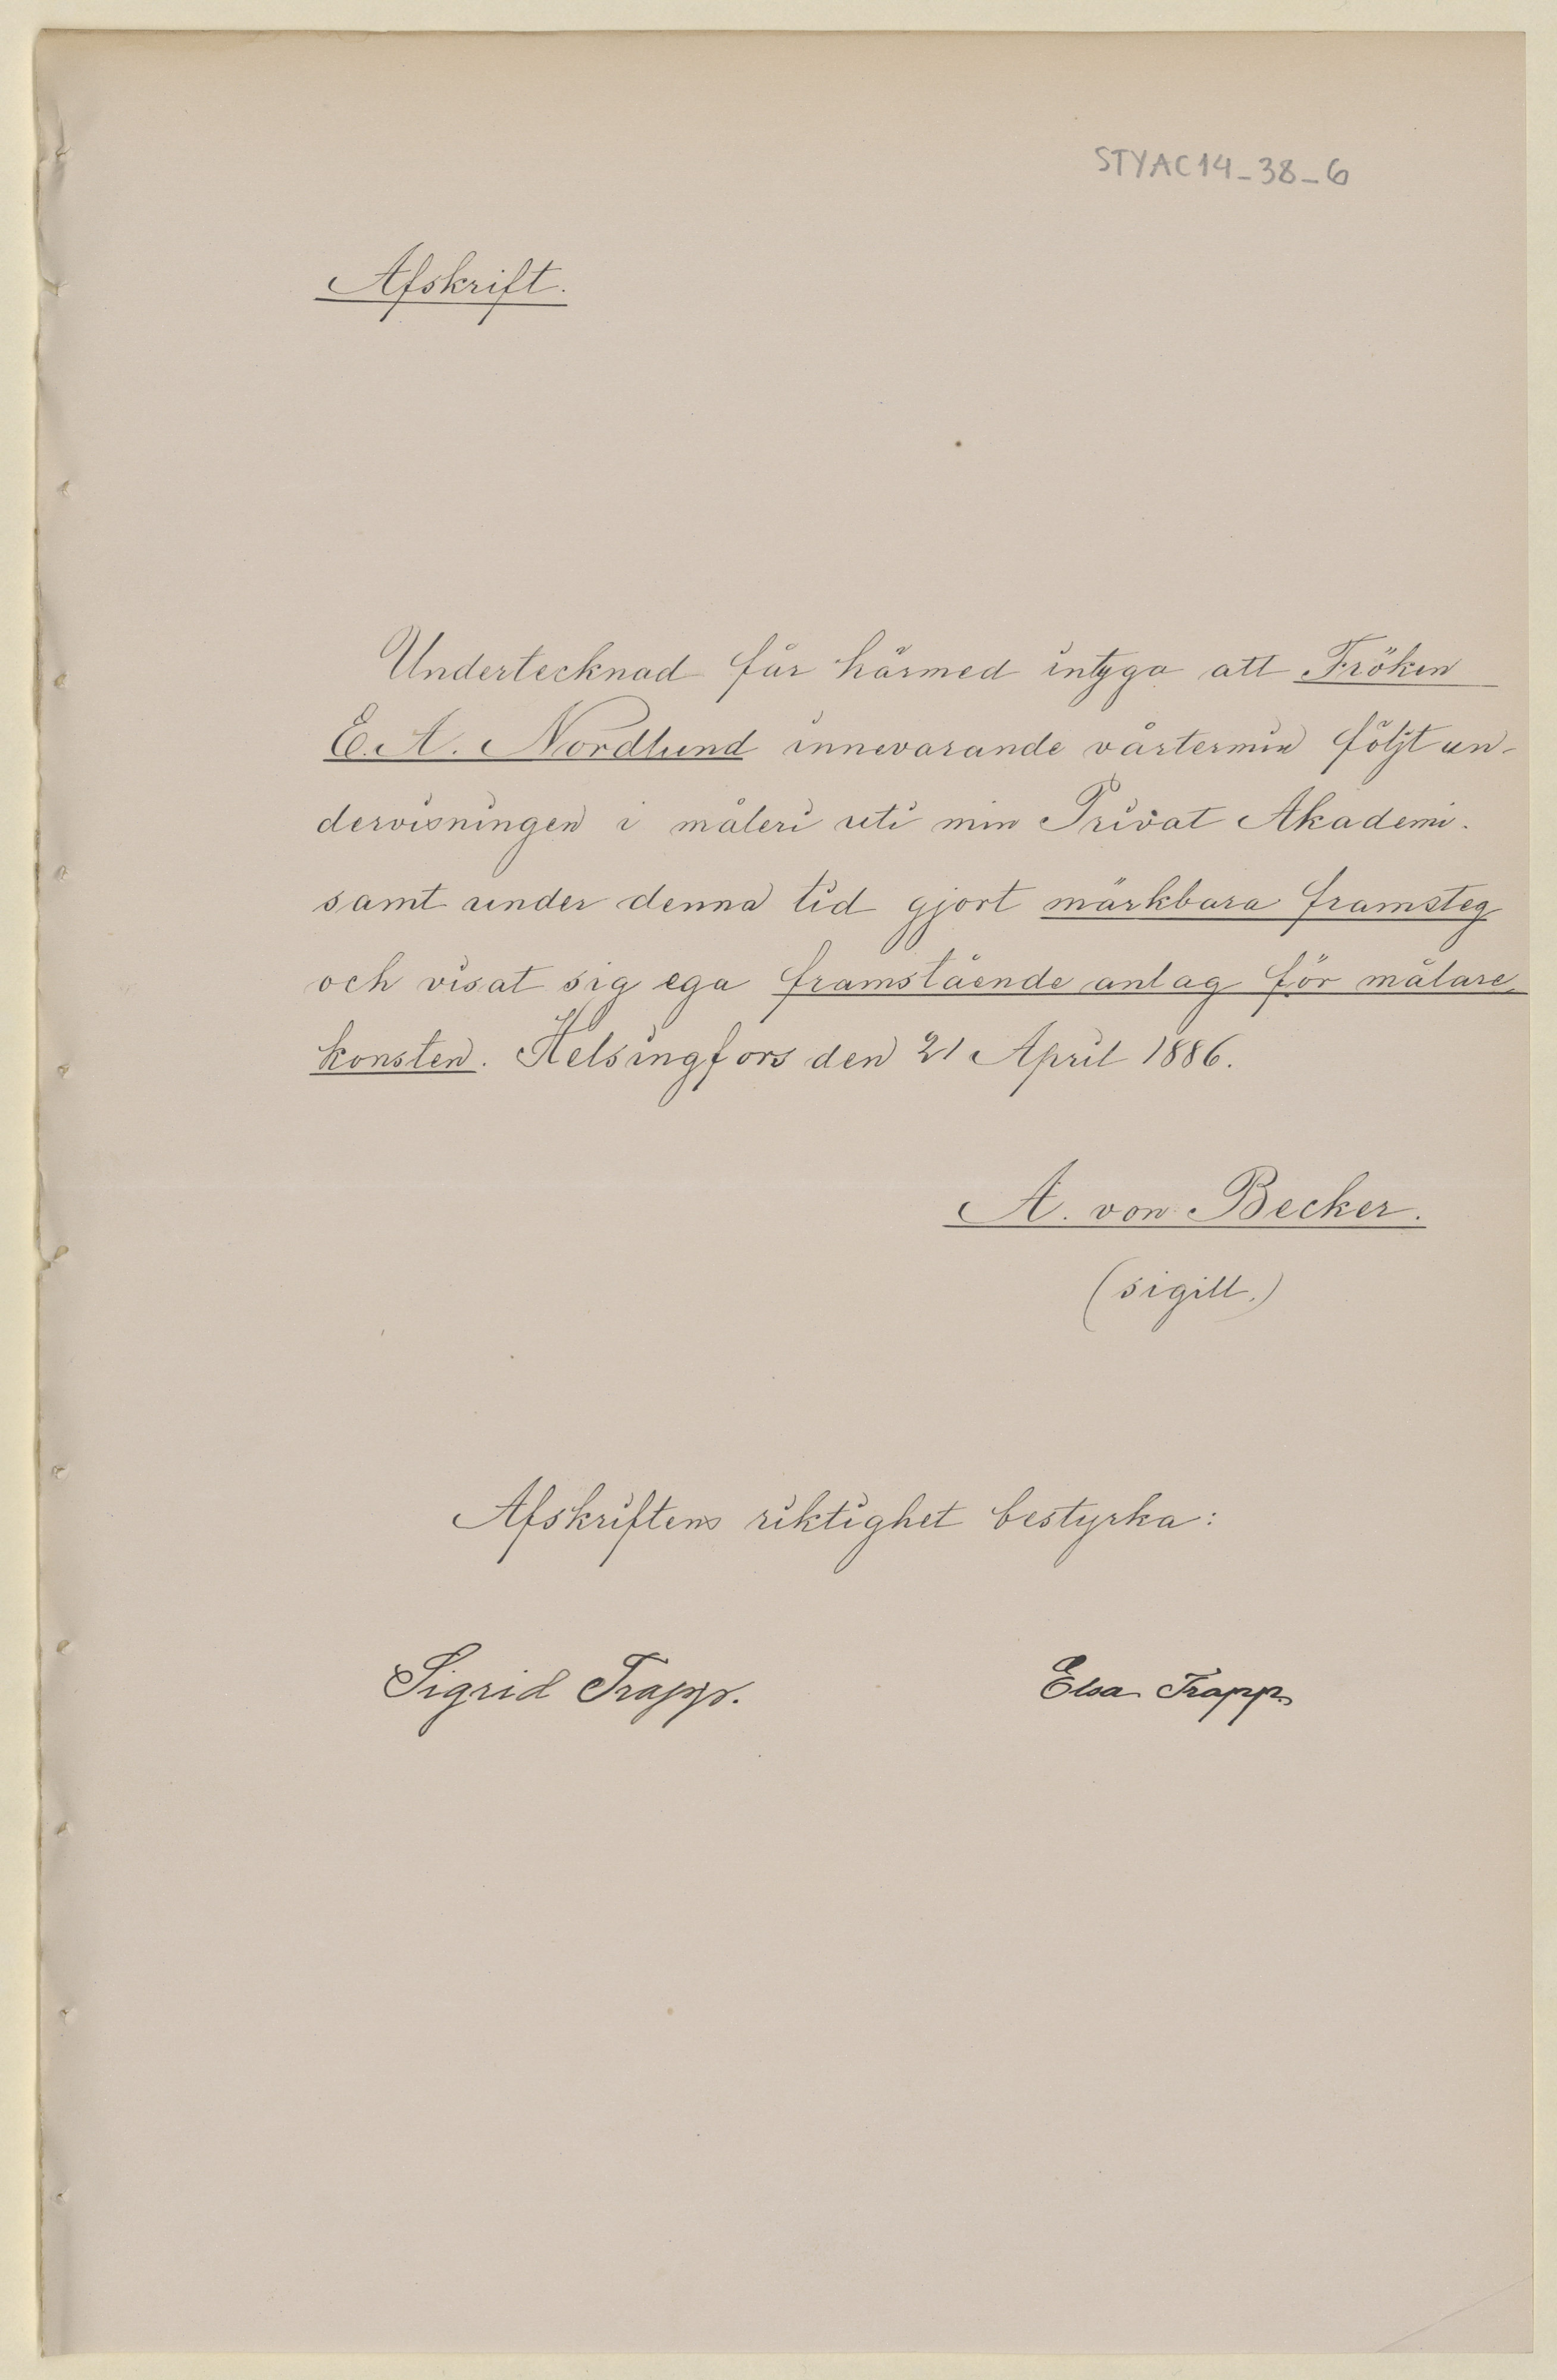 STYAC14_38_6
Afskrift.
Undertecknad får härmed intyga att Fröken
E. A. Nordlund innevarande vårtermin följt un-
dervisningen i måleri uti min Privat Akademi.
samt under denna tid gjort märkbara framsteg
och visat sig ega framstående anlag för målare-
konsten. Helsingfors den 21 April 1886.
A. von Becker.
(sigill.)
Afskriftens riktighet bestyrka:
Sigrid Trapp. Elsa Trapp.